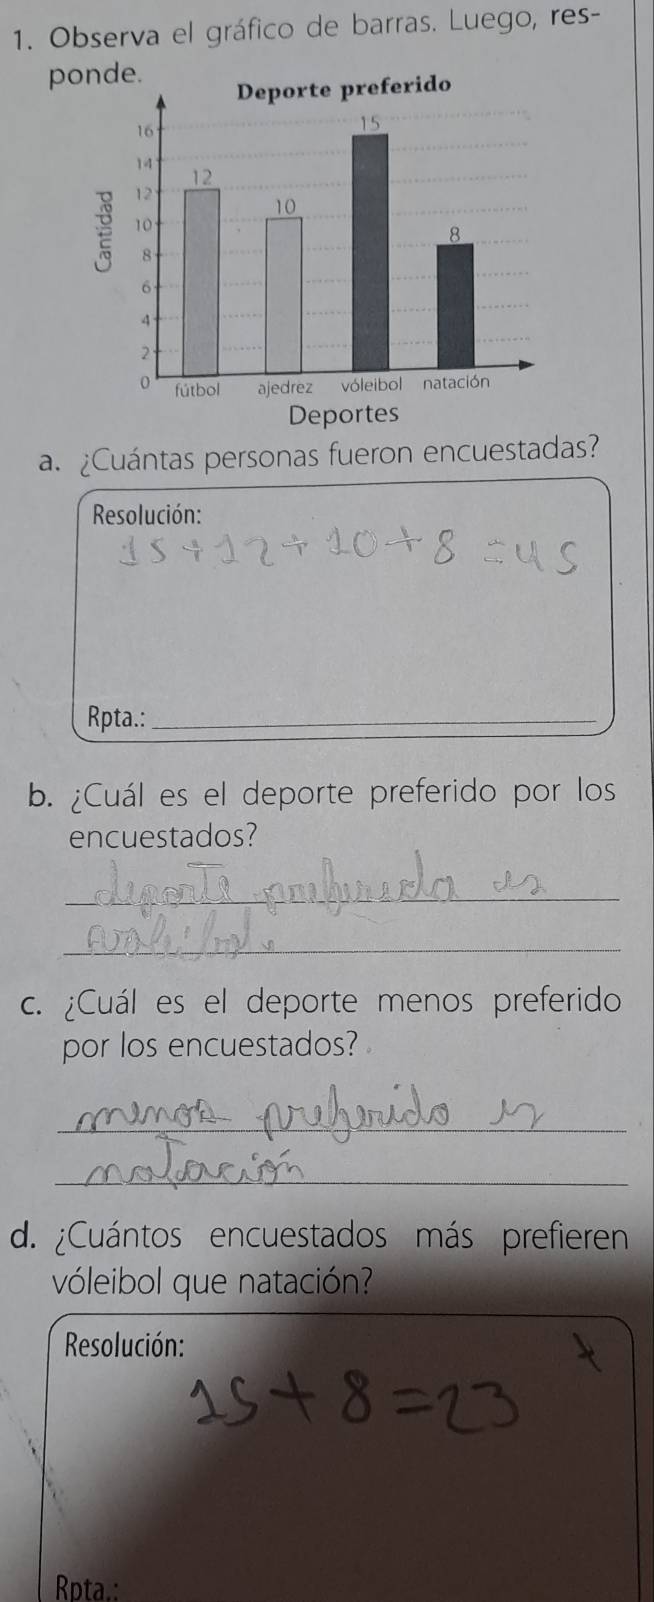 1. Observa el gráfico de barras. Luego, res-
ponde.
Deporte preferido
16
14
12
10
8
6
4
2
0
Cantidad
12
10
15
8
fútbol ajedrez vóleibol natación
Deportes
a. ¿Cuántas personas fueron encuestadas?
Resolución:
15+12+10+8=45
Rpta.:
b. ¿Cuál es el deporte preferido por los
encuestados?
deporte preferido es
c. ¿Cuál es el deporte menos preferido
por los encuestados?
menos preferido es
natación
d. ¿Cuántos encuestados más prefieren
vóleibol que natación?
Resolución:
15+8=23
Rpta.: